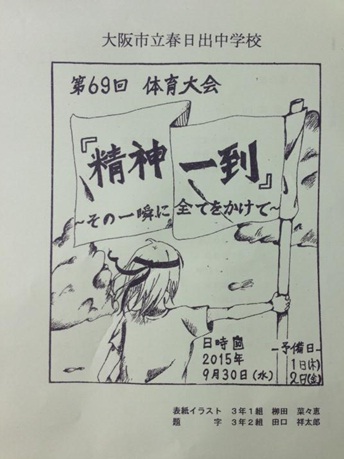 大阪市立春日出中学校
第69回 体育大会
『精神一到』
～その一瞬に全てをかけて～
日時
2015年
9月30日(水)
-予備日-
1日(木)
2日(金)
表紙イラスト 3年1組 柳田 菜々恵
題字 3年2組 田口 祥太郎